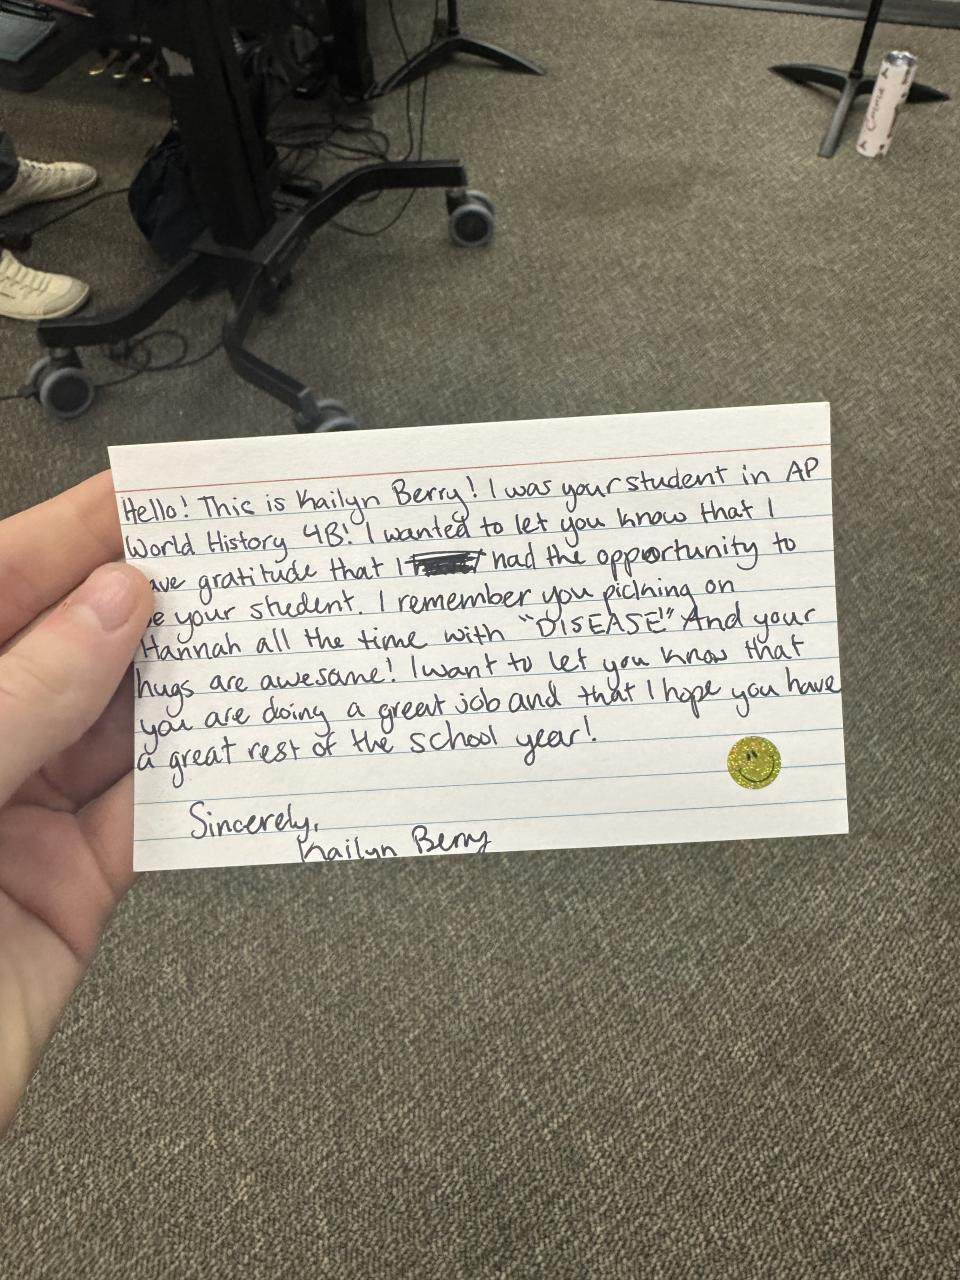 Hello! This is Kailyn Berry! I was your student in AP
World History 4B! I wanted to let you know that I
ave gratitude that I had the opportunity to
e your student. I remember you picking on
Hannah all the time with "DISEASE!" And your
hugs are awesome! I want to let you know that
you are doing a great job and that I hope you have
a great rest of the school year!
Sincerely,
Kailyn Berry